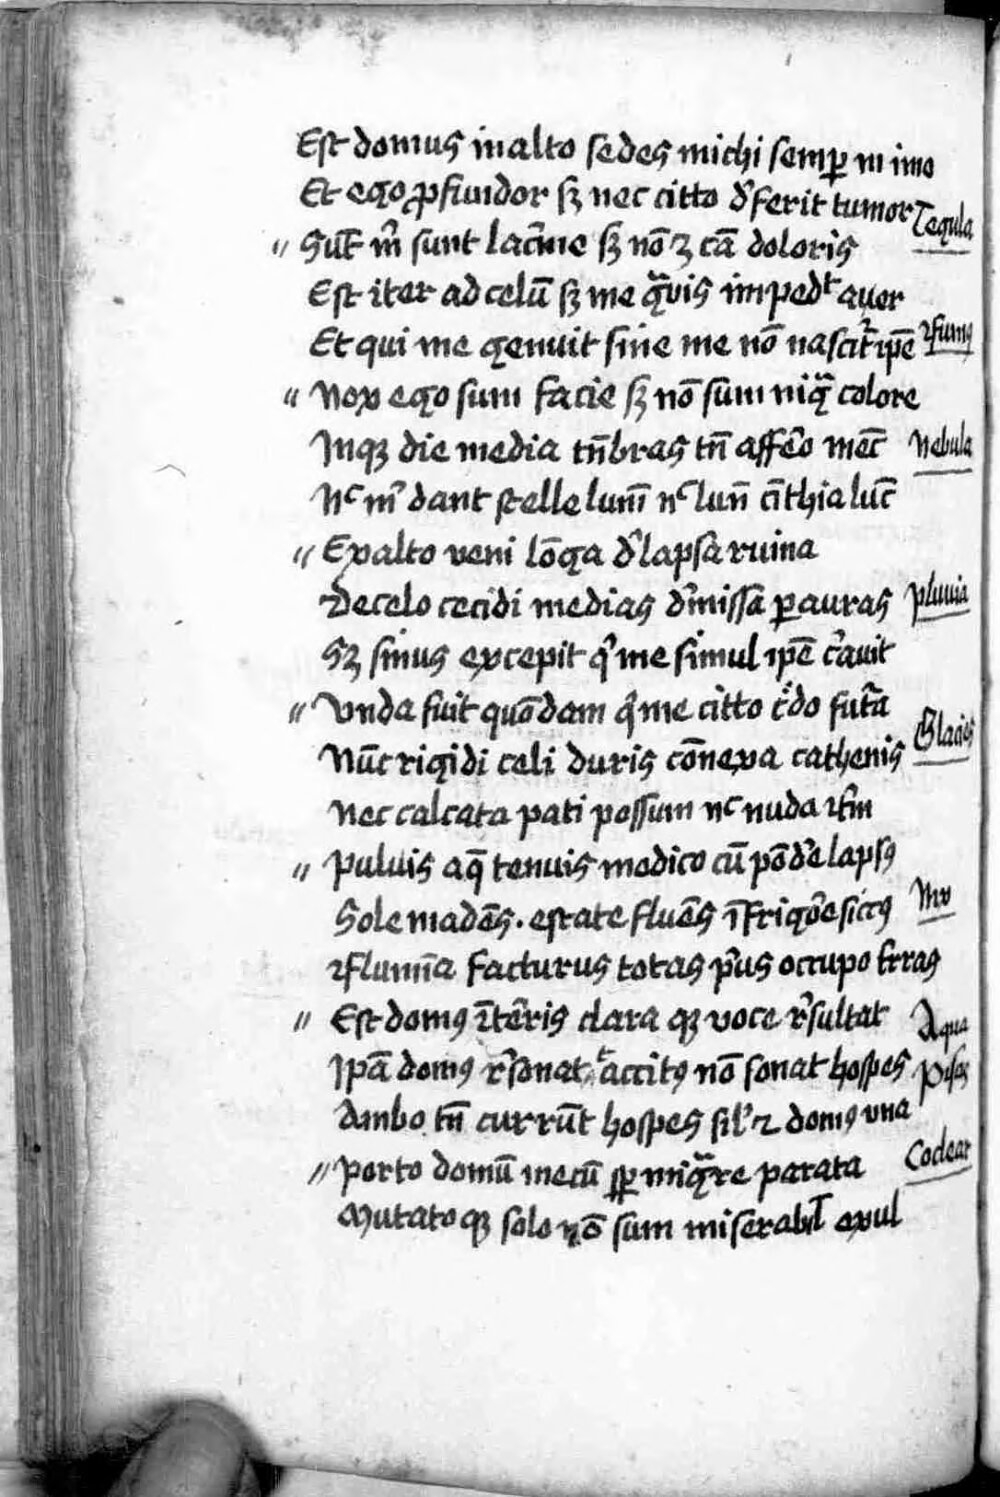 Est domus in alto sedes michi semꝑ in imo
Et ego ꝓfundor sꝫ nec citto d͛ferit tumor Tegula
〃 Sūt m̄ sunt lac̄me sꝫ nō ꝫ cā doloris
Est iter ad celū sꝫ me qͣvis impedt auer
Et qui me genuit sine me nō nascit᷑ ip̄e ⁊fumꝰ
〃 Nox ego sum facie sꝫ nō sum nigͣ colore
Inqꝫ die media tn̄bras tn̄ affero mec̄ Nebula
Nͨ m dant stelle lum̄ nͨ lun̄ cīthia luc̄
〃 Ex alto veni lōga d͛lapsa ruina
De celo cecidi medias d͛missā ꝑ auras pluuia
Sꝫ sinus excepit qͥ me simul ip̄e c͛auit
〃 Vnda fuit quōdam qͥ me citto c͛do fut͛a Glacies
Nūc rigidi celi duris cōnexa cathenis
Nec calcata pati possum nͨ nuda
〃 Puluis aq̄ tenuis modico cū pōd͛e lapsꝰ
Sole madēs . estate fluēs ī frigo͛e siccꝰ Nix
⁊flumīa facturus totas p͛us occupo t͛ras
〃 Est domꝰ ī t͛ris clara qꝫ voce r͛sultat Aqua
Ipā domꝰ r͛sonat tͣccitꝰ nō sonat hospes pisces
Ambo tn̄ currūt hospes sil̓ ⁊ domꝰ vna
〃 Porto domū mecū sꝑ migͣre parata Coclear
Mutatoqꝫ solo nō sum miserabil̄ exul